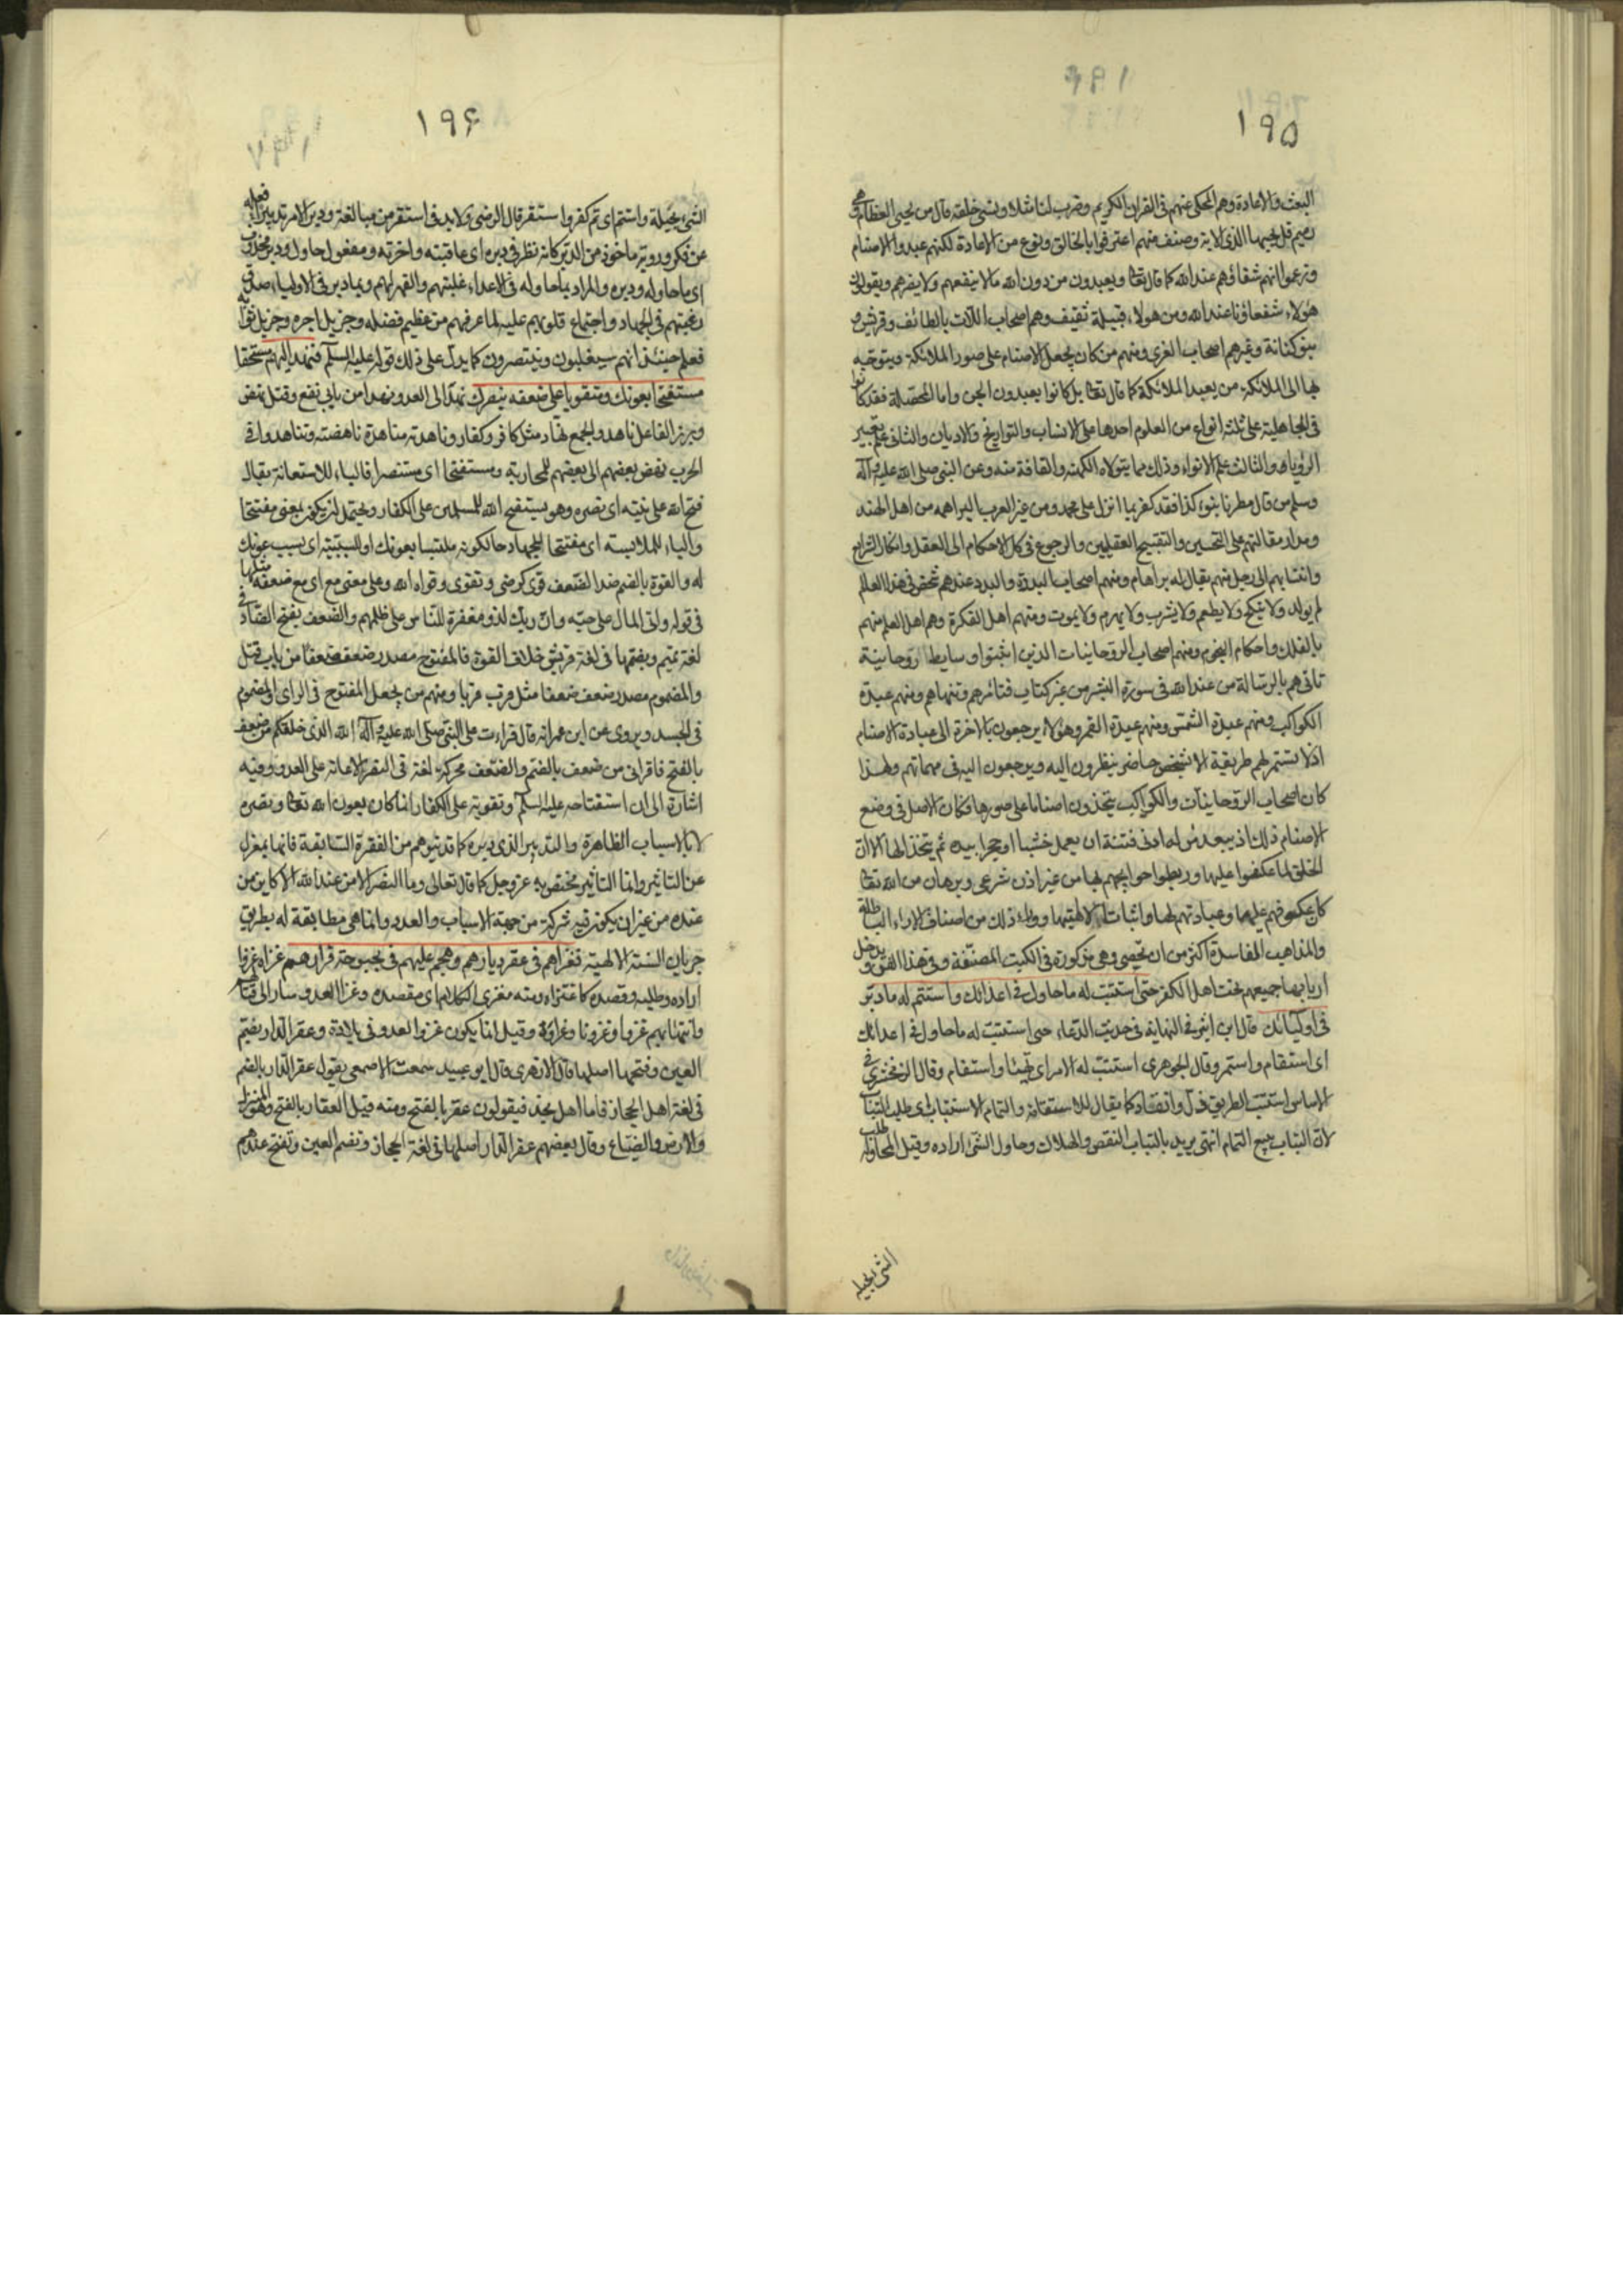 ١٩٥
البعث والاعادة وهم المحكى عنهم فى القران الكريم وضرب لنا مثلا ونسى خلقه قال من يحيى العظام وهى
رميم قل يحييها الذى الاية وصنف منهم اعترفوا بالخالق ونوع من الاعادة لكنهم عبدوا الاصنام
وزعموا انهم شفعاؤهم عند الله كما قال تعالى ويعبدون من دون الله ما لا ينفعهم ولا يضرهم ويقولون
هؤلاء شفعاؤنا عند الله ومن هولاء قبيلة ثقيف وهم اصحاب اللات بالطائف وقريش و
بنو كنانة وغيرهم اصحاب العزى ومنهم من كان يجعل الاصنام على صور الملائكة ويتوجه
بها الى الملائكة ومن يعبد الملائكة كما قال تعالى بل كانوا يعبدون الجن واما المحصلة فقد كانوا
فى الجاهلية على ثلثة انواع من العلوم احدها علم الانساب والتواريخ والاديان والثانى علم تعبير
الرؤيا والثالث علم الانواء وذلك مما يتولاه الكهنة والقافة منه وعن النبى صلى الله عليه وآله
وسلم من قال مطرنا بنوء كذا فقد كفر بما انزل على محمد ومن غير العرب البراهمه من اهل الهند
ومدار مقالتهم على التحسين والتقبيح العقليين والرجوع فى كل الاحكام الى العقل وانكار الشرايع
وانتسابهم الى رجل منهم يقال له براهام ومنهم اصحاب البددة والبدد عندهم شخص فى هذا العالم
لم يولد ولا ينكح ولا يطعم ولا يشرب ولا يهرم ولا يموت ومنهم اهل الفكرة وهم اهل العلم منهم
بالفلك واحكام النجوم ومنهم اصحاب الروحانيات الذين اثبتوا وسايط روحانية
تاتى هم بالرسالة من عند الله فى سورة البشر من غير كتاب فتامرهم وتنهاهم ومنهم عبدة
الكواكب ومنهم عبدة الشمس ومنهم عبدة القمر وهؤلاء يرجعون بالاخرة الى عبادة الاصنام
اذ لا تستمر لهم طريقية الا بشخص حاضر ينظرون اليه ويرجعون اليه فى مهماتهم ولهذا
كان اصحاب الروحانيات والكواكب يتخذون اصناما على صورها وكان الاصل فى وضع
الاصنام ذلك اذ يبعد من له ادنى فتنة ان يعمل خشبا او حجرا بيده ثم يتخذ الها الا ان
الخلق لما عكفوا عليها وربطوا حوايجهم بها من غير اذن شرعى وبرهان من الله تعالى
كان عكوفهم عليها وعبادتهم لها واثبات الالهيتها ووراء ذلك من اصناف الاراء الباطلة
والمذاهب الفاسدة اكثر من ان تحصى وهى مذكورة فى الكتب المصنفة فى هذا الفن ويدخل
اربابها جميعهم تحت اهل الكفر حتى استتب له ما حاول فى اعدائك واستتم له ما دبر
فى اوليائك قال ابن اثير فى النهاية فى حديث الدعاء حتى استتب له ما حاول فى اعدائك
اى استقام واستمر وقال الجوهرى استتب له الامر اى تهيئا واستقام وقال الزمخشرى فى
الاساس استتب الطريق ذل وانقاد كما يقال للاستقامة والتمام الاستتباب اى طلب التباب
لان التباب يتبع التمام انتهى يريد بالتباب النقص والهلاك وحاول الشئ اراده وقيل المحاولة طلب
الشئ بحيله
١٩۶
الشئ بحيلة واستتم اى تم كفر واستقر قال الرضى ولا بد فى استقر من مبالغة ودبر الامر تدبيرا فعله
عن فكر وروية ماخوذ من الدبر كانه نظر فى دبره اى عاقبته واخرته ومفعول حاول ودبر محذوف
اى ما حاوله ودبره والمراد بما حاوله فى الاعداء غلبتهم والقهر لهم وبما دبر فى الاولياء صدق
رغبتهم فى الجهاد واجتماع قلوبهم عليه لما عرفهم من عظيم فضله وجزيل اجره وجزيل ثوابه
فعلم حينئذ انهم سيغلبون وينتصرون كما يدل على ذلك قوله عليه السلم فنهد اليهم مستفتحا
مستفتحا بعونك ومتقويا على ضعفه بنصرك نهد الى العدو نهدا من بابى نفع وقتل نهض
وبرز الفاعل ناهد والجمع نهاد مثل كافر وكفار وناهدته مناهدة ناهضته وتناهدوا فى
الحرب نهض بعضهم الى بعضهم للمحاربة ومستفتحا اى مستنصرا فالباء للاستعانة يقال
فتح الله على نبيه اى نصره وهو يستفتح الله للمسلمين على الكفار ويحتمل ان يكون بمعنى مفتتحا
والباء للملابسة اى مفتتحا للجهاد حالكونه ملتبسا بعونك او للسببية اى بسبب عونك
له والقوة بالضم ضد الضعف قوى كرضى وتقوى وقواه الله وعلى بمعنى مع اى مع ضعفه مثلها
فى قوله واتى المال على حبه وان ربك لذو مغفرة للناس على ظلمهم والضعف بفتح الضاد فى
لغة تميم وبضمها فى لغة قريش خلاف القوة فالمفتوح مصدر ضعف ضعفا من باب قتل
والمضموم مصدر ضعف ضعفا مثل قرب قربا ومنهم من يجعل المفتوح فى الراى والمضموم
فى الجسد ويروى عن ابن عمر انه قال قراءت على النبى صلى الله عليه وآله الله الذى خلقكم من ضعف
بالفتح فاقرانى من ضعف بالضم والضعف محركة لغة فى النصر الاعانة على العدو وفيه
اشارة الى ان استفتاحه عليه السلم وتقويته على الكفار انما كان بعون الله تعالى ونصره
لا بالاسباب الظاهرة والتدبير الذى دبره كما قد يتوهم من الفقرة السابقة فانها بمعزل
عن التاثير وانما التاثير مختص به عز وجل كما قال تعالى وما النصر الا من عند الله الا كاين من
عنده من غير ان يكون فيه شركة من جهة الاسباب والعدد وانما هى مطابقة له بطريق
جريان السنة الالهية فغزاهم فى عقر ديارهم وهجم عليهم فى بحبوحة قرارهم غزاه غزوا
اراده وطلبه وقصده كاغتزاه ومنه مغزى الكلام اى مقصده وغزا العدو سار الى قتالهم
وانتهابهم غزوا وغزوانا وغزاوة وقيل انما يكون غزو العدو فى بلاده وعقر الدار بضم
العين وفتحها اصلها قال الازهرى قال ابو عبيد سمعت الاصمعى يقول عقر الدار بالضم
فى لغة اهل الحجاز فاما اهل نجد فيقولون عقر بالفتح ومنه قيل العقار بالفتح وهو المنزل
والارض والضياع وقال بعضهم عقر الدار اصلها فى لغة الحجاز وتضم العين وتفتح عندهم